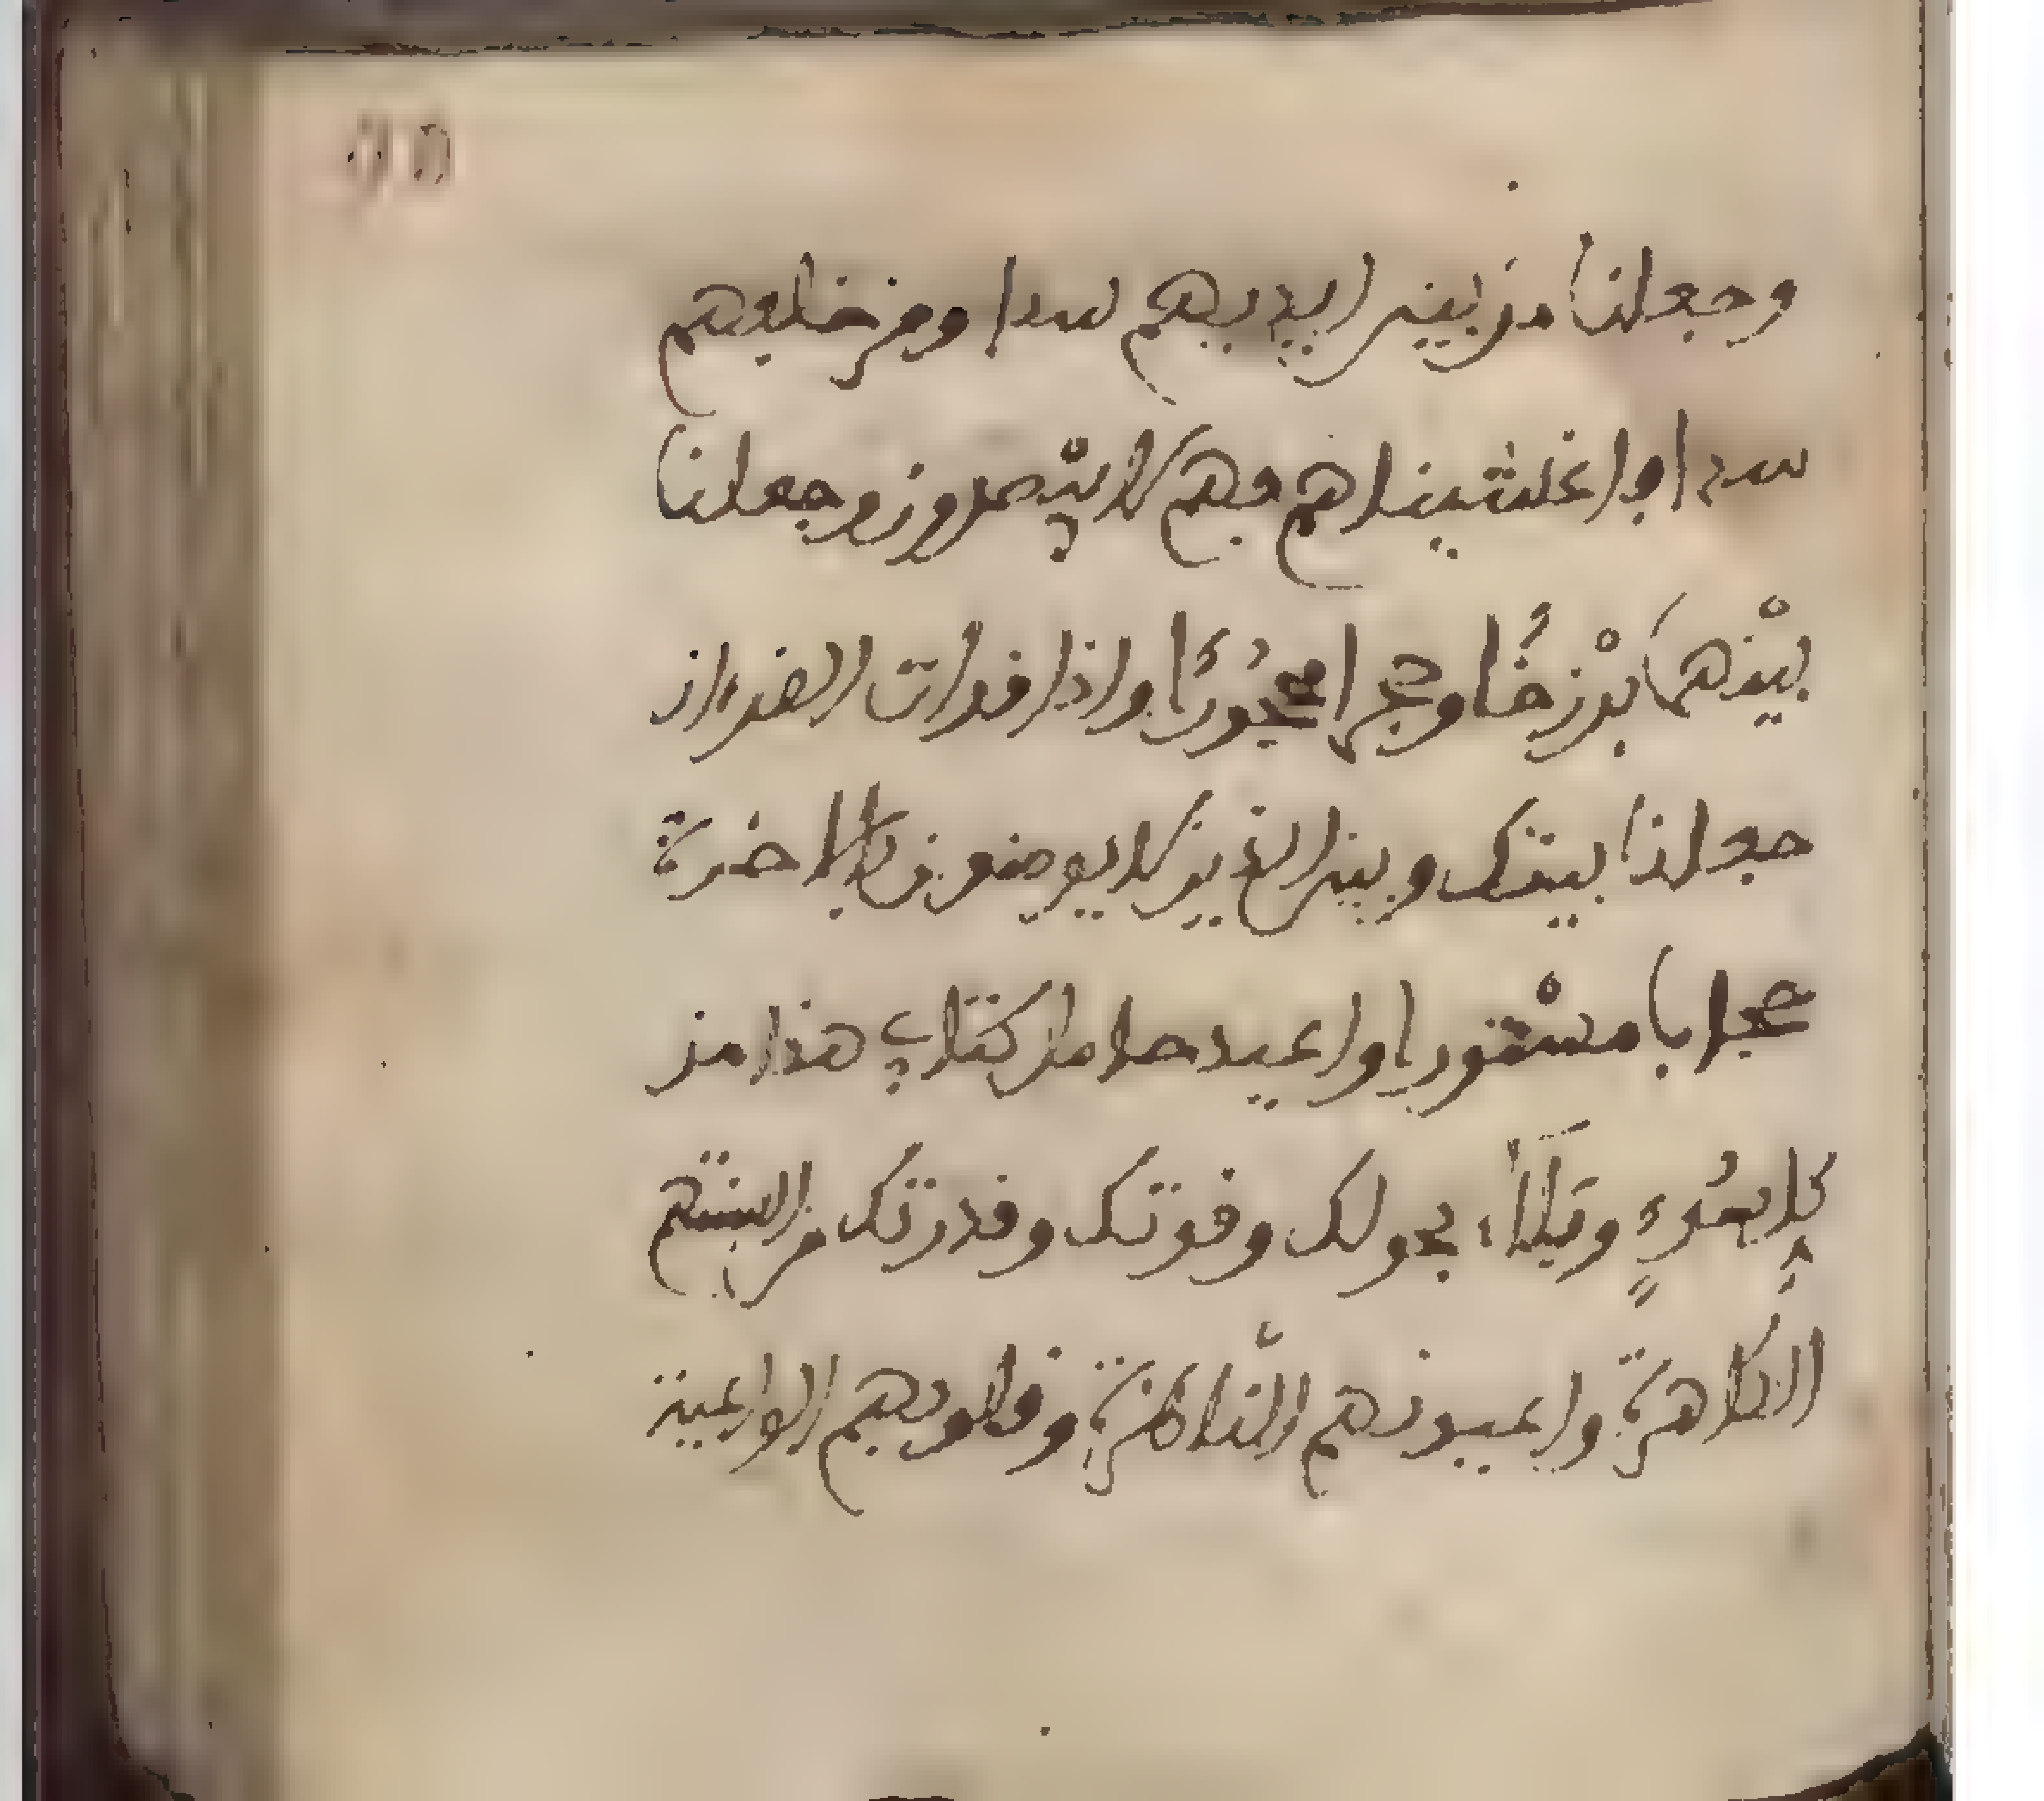 وجعلنا من بين ايديهم سدا ومن خلفهم
سدا واغشيناهم فهم لا يبصرون وجعلنا
بيْنهما برْزخًا وحجرا محجُورًا واذا قرات القرءان
جعلنا بينك وبين الذين لا يومنون بالاخرة
حجابا مستْورا واعيذ حامل كتابي هذا من
كل سُوءٍ وبَلَاء بحولك وقوتك وقدرتك من السنتهم
الطاهرة واعيونهم النّاظرة وقلوبهم الواعية